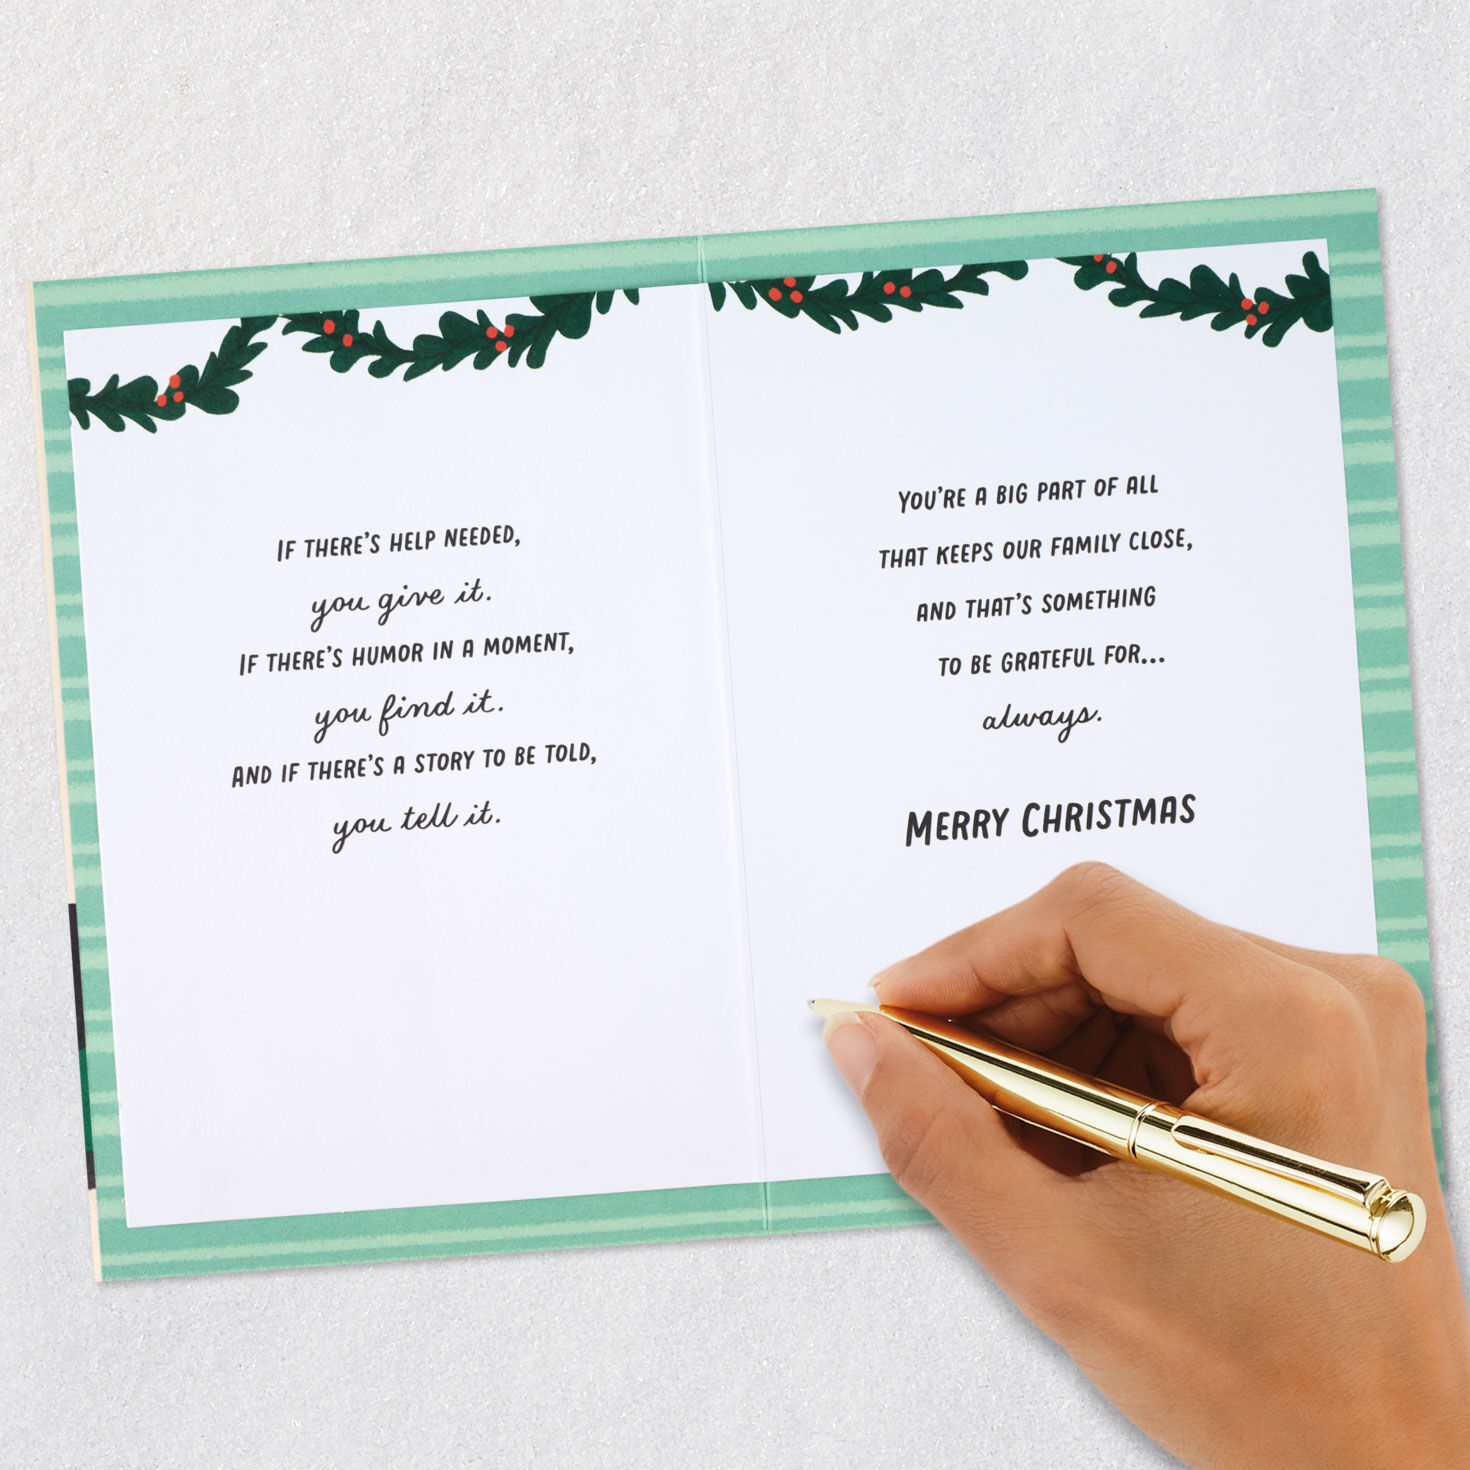 IF THERE'S HELP NEEDED,
you give it.
IF THERE'S HUMOR IN A MOMENT,
you find it.
AND IF THERE'S A STORY TO BE TOLD,
you tell it.
YOU'RE A BIG PART OF ALL
THAT KEEPS OUR FAMILY CLOSE,
AND THAT'S SOMETHING
TO BE GRATEFUL FOR...
always.
MERRY CHRISTMAS